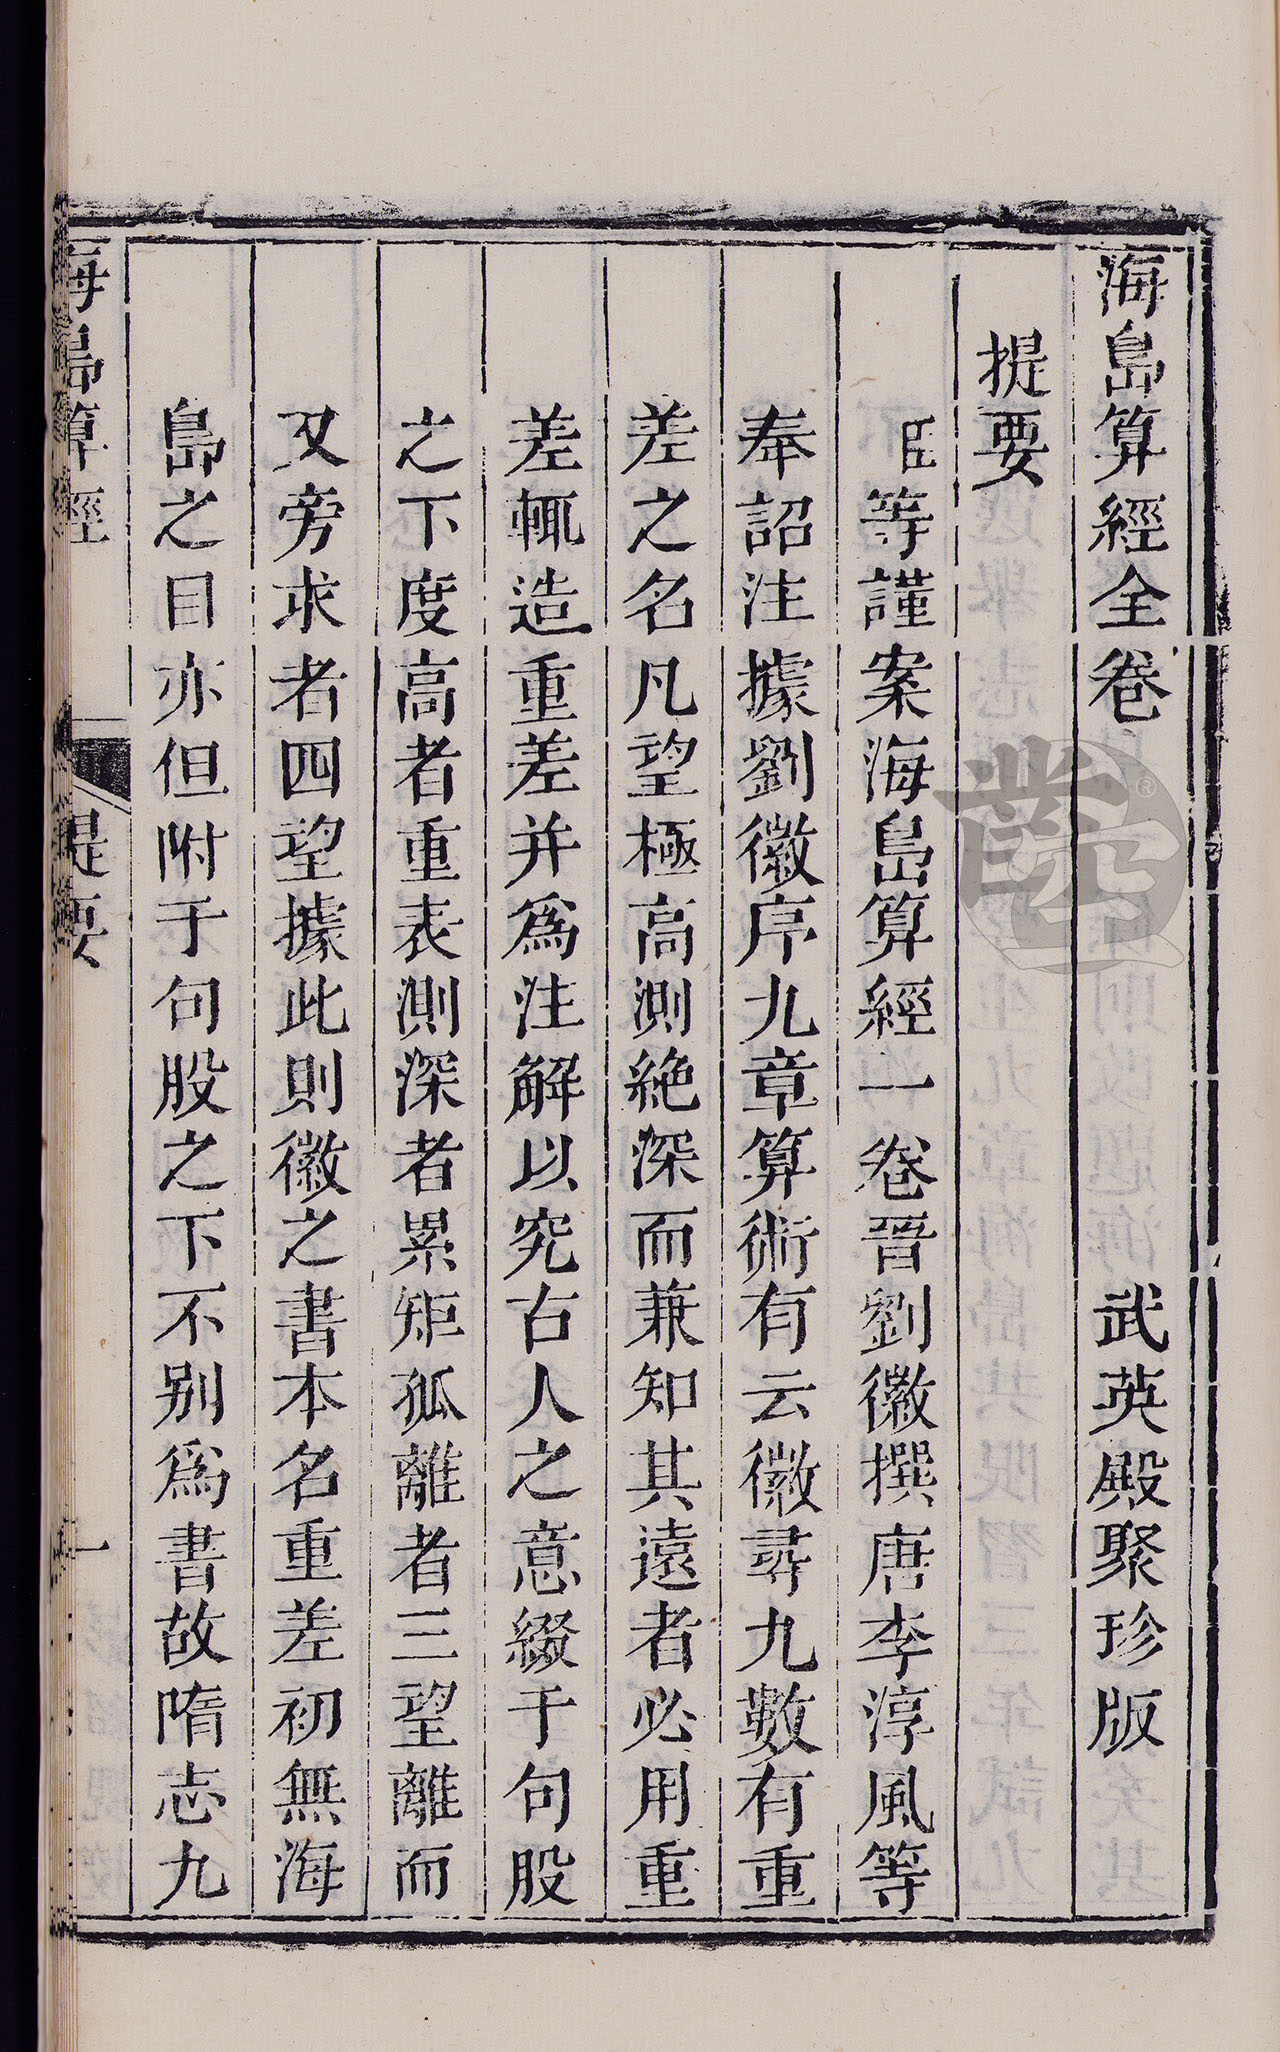 海島算經全卷　武英殿聚珍版
提要
臣等謹案海島算經一卷晉劉徽撰唐李淳風等
奉詔注據劉徽序九章算術有云徽尋九數有重
差之名凡望極高測絶深而兼知其遠者必用重
差輒造重差并爲注解以究古人之意綴于句股
之下度高者重表測深者累矩孤離者三望離而
又旁求者四望據此則徽之書本名重差初無海
島之目亦但附于句股之下不别爲書故隋志九
海島算經　提要　一